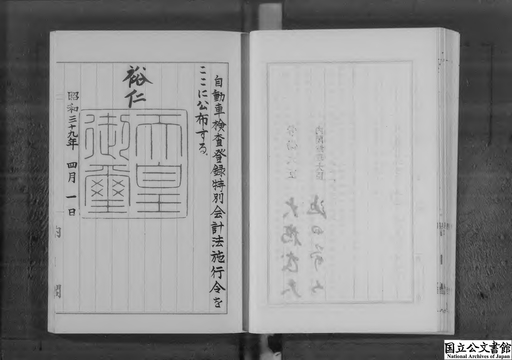 自動車検査登録特別会計法施行令を
ここに公布する。
裕仁
天皇
御璽
昭和三十九年 四月 一日
国立公文書館
National Archives of Japan